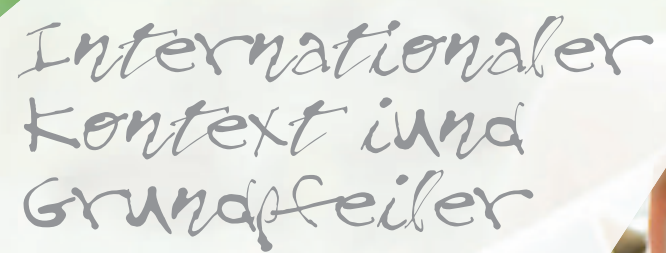 Internationaler
Kontext iund
Grundpfeiler